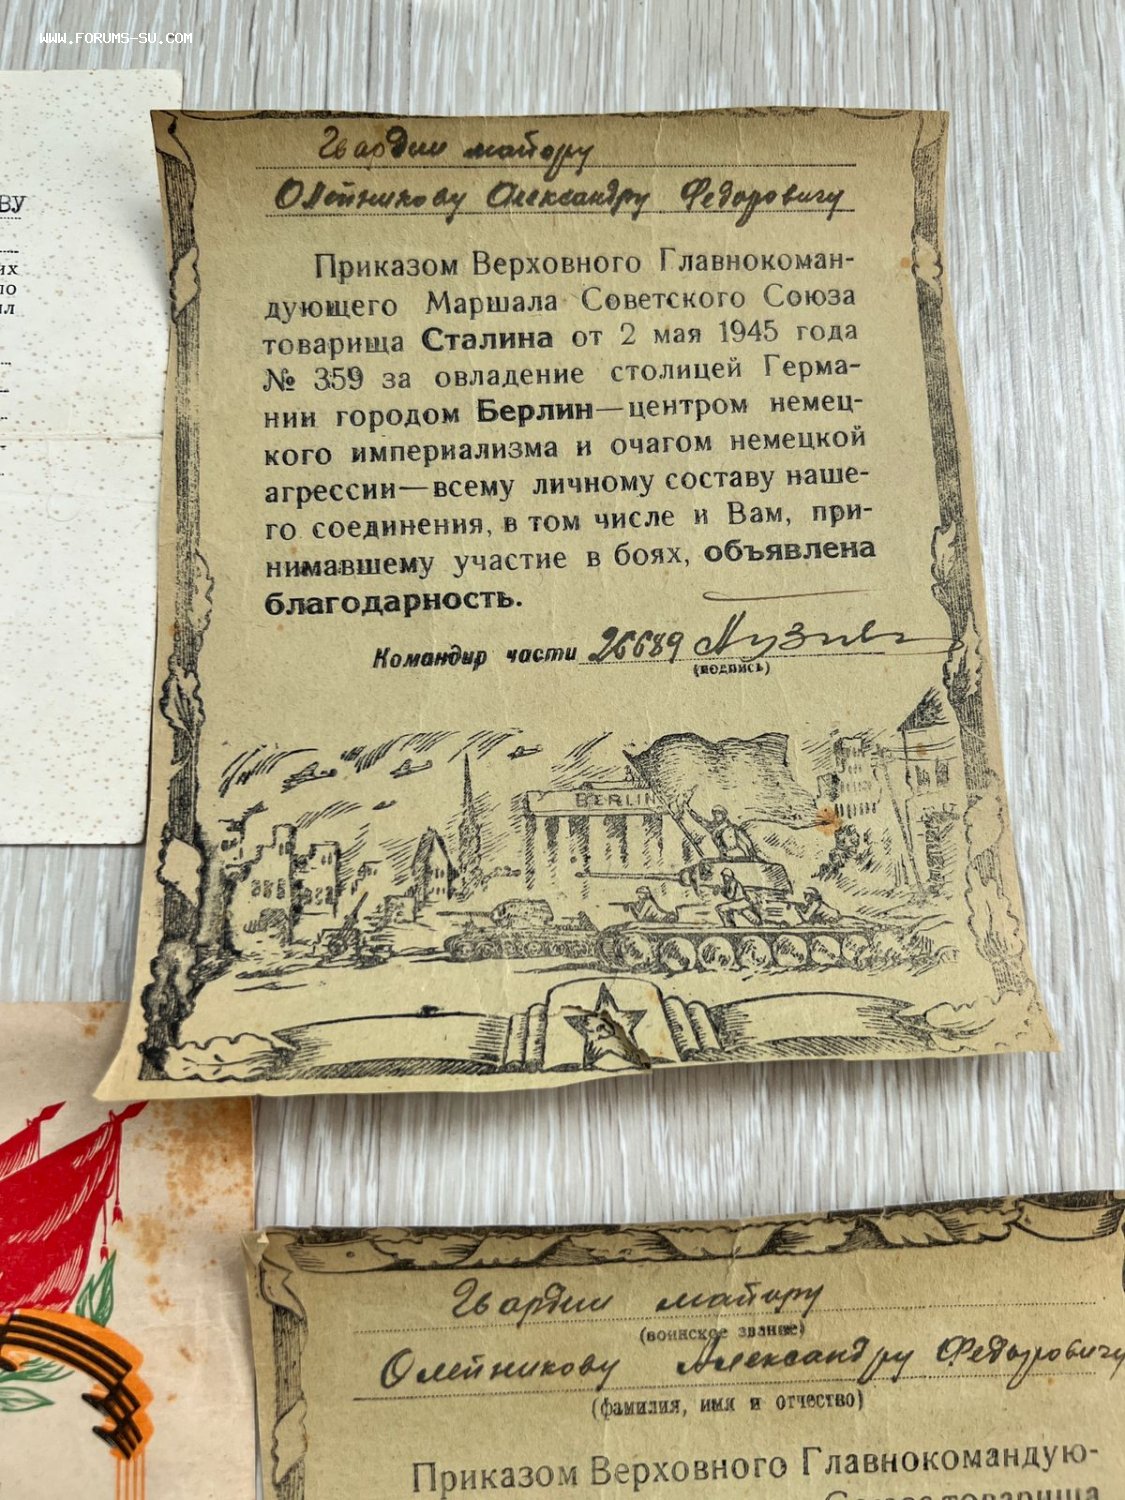 www.forums-su.com
ву
их
ло
ил
Гвардии майору
Олейникову Александру Федоровичу
Приказом Верховного Главнокоман-
дующего Маршала Советского Союза
товарища Сталина от 2 мая 1945 года
№ 359 за овладение столицей Герма-
нии городом Берлин—центром немец-
кого империализма и очагом немецкой
агрессии—всему личному составу наше-
го соединения, в том числе и Вам, при-
нимавшему участие в боях, объявлена
благодарность.
Командир части 26689
(подпись)
BERLIN
Гвардии майору
(воинское звание)
Олейникову Александру Федоровичу
(фамилия, имя и отчество)
Приказом Верховного Главнокомандую-
Союза товарища